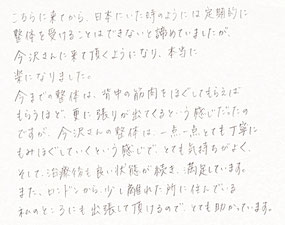 こちらに来てから、日本にいた時のようには定期的に
整体を受けることはできないと諦めていましたが、
今沢さんに来て頂くようになり、本当に
楽になりました。
今までの整体は、背中の筋肉をほぐしてもらえば
もらうほど、更に張りが出てくるという感じだったの
ですが、今沢さんの整体は、一点一点とても丁寧に
もみほぐしていくという感じで、とても気持ちがよく、
そして、治療後も良い状態が続き、満足しています。
また、ロンドンから少し離れた所に住んでいる
私のところにも出張して頂けるので、とても助かっています。